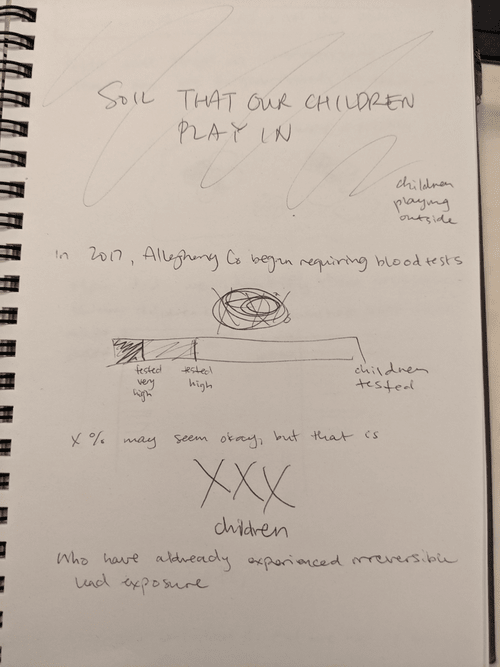 SOIL THAT OUR CHILDREN
PLAY IN
children
playing
outside
In 2017, Allegheny Co began requiring blood tests
tested
very
high
tested
high
children
tested
X % may seem okay, but that is
XXX
children
Who have aldready experienced irreversible
lead exposure